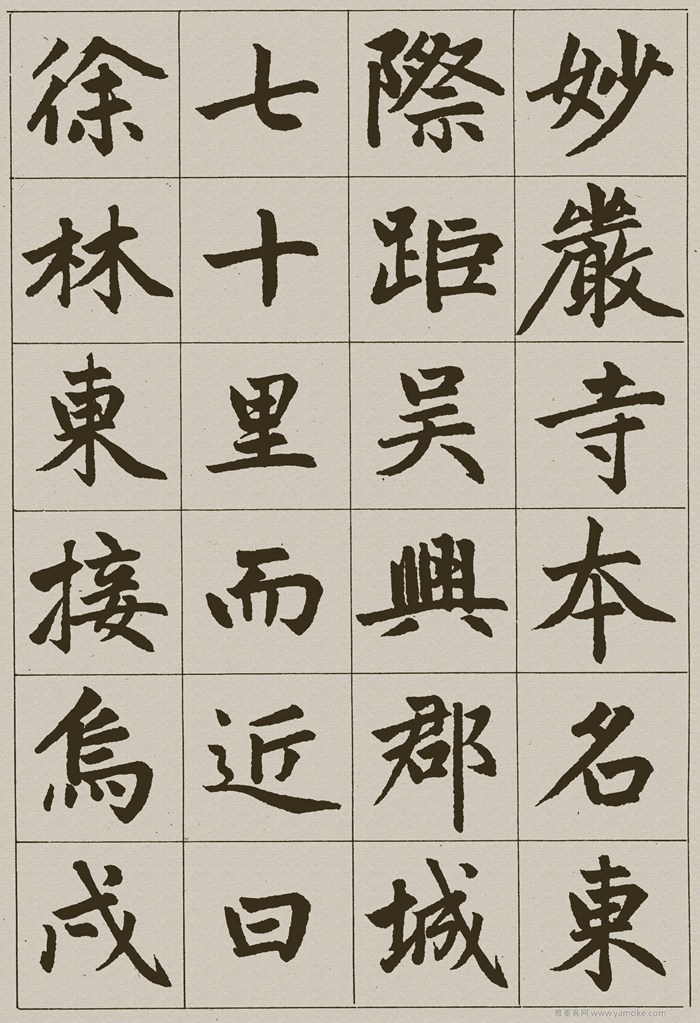 妙嚴寺本名東
際距吴興郡城
七十里而近曰
徐林東接烏戍
雅墨客网 www.yamoke.com